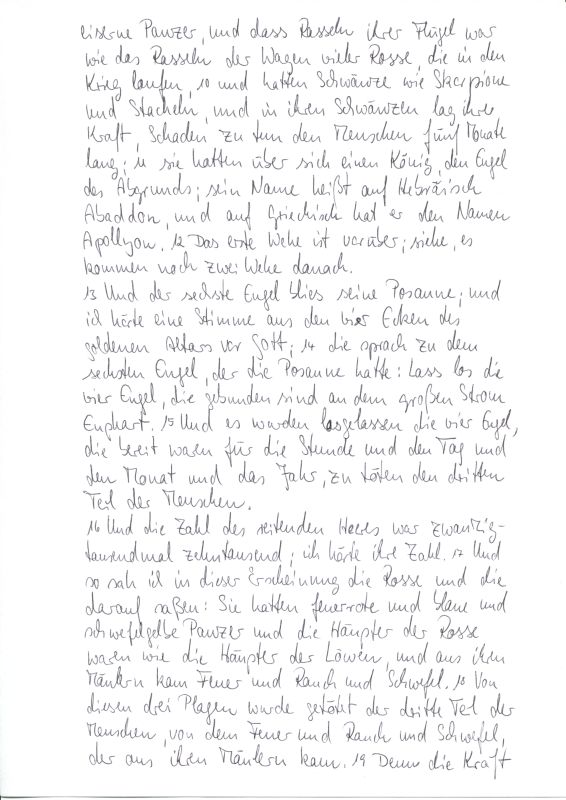 eiserne Panzer, und dass Rasseln ihrer Flügel war
wie das Rasseln der Wagen vieler Rosse, die in den
Krieg laufen, 10 und hatten Schwänze wie Skorpione
und Stacheln, und in ihren Schwänzen lag ihre
Kraft, Schaden zu tun den Menschen fünf Monate
lang; 11 sie hatten über sich einen König, den Engel
des Abgrunds; sein Name heißt auf Hebräisch
Abaddon, und auf Griechisch hat er den Namen
Apollyon. 12 Das erste Wehe ist vorüber; siehe, es
kommen noch zwei Wehe danach.
13 Und der sechste Engel blies seine Posaune; und
ich hörte eine Stimme aus den vier Ecken des
goldenen Altars vor Gott; 14 die sprach zu dem
sechsten Engel, der die Posaune hatte: Lass los die
vier Engel, die gebunden sind an dem großen Strom
Euphrat. 15 Und es wurden losgelassen die vier Engel,
die bereit waren für die Stunde und den Tag und
den Monat und das Jahr, zu töten den dritten
Teil der Menschen.
16 Und die Zahl des reitenden Heeres war zwanzig-
tausendmal zehntausend; ich hörte ihre Zahl. 17 Und
so sah ich in dieser Erscheinung die Rosse und die
darauf saßen: Sie hatten feuerrote und blaue und
schwefelgelbe Panzer und die Häupter der Rosse
waren wie die Häupter der Löwen, und aus ihren
Mäulern kam Feuer und Rauch und Schwefel. 18 Von
diesen drei Plagen wurde getötet der dritte Teil der
Menschen, von dem Feuer und Rauch und Schwefel,
der aus ihren Mäulern kam. 19 Denn die Kraft